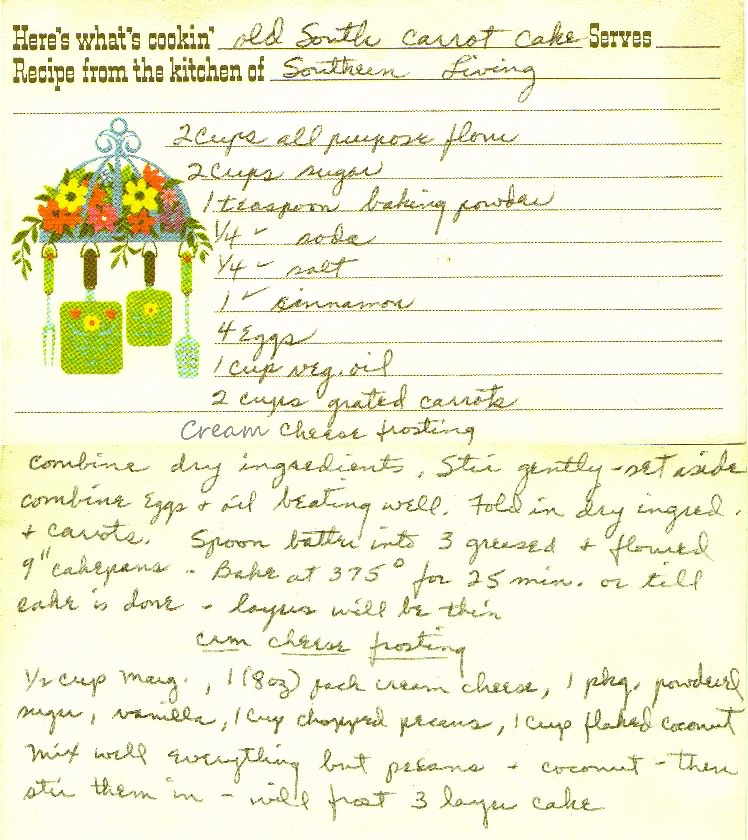 Here's what's cookin' old South carrot cake Serves
Recipe from the kitchen of Southern Living
2 cups all purpose flour
2 cups sugar
1 teaspoon baking powder
1/4 " soda
1/4 " salt
1 " cinnamon
4 Eggs
1 cup veg. oil
2 cups grated carrots
Cream cheese frosting
combine dry ingredients, Stir gently - set aside
combine Eggs + oil beating well. Fold in dry ingred.
+ carrots. Spoon batter into 3 greased + floured
9" cakepans - Bake at 375° for 25 min. or till
cake is done - layers will be thin
crm cheese frosting
1/2 cup marg., 1 (8oz) pack cream cheese, 1 pkg. powdered
sugar, vanilla, 1 cup chopped pecans, 1 cup flaked coconut
Mix well everything but pecans + coconut - then
stir them in - will frost 3 layer cake